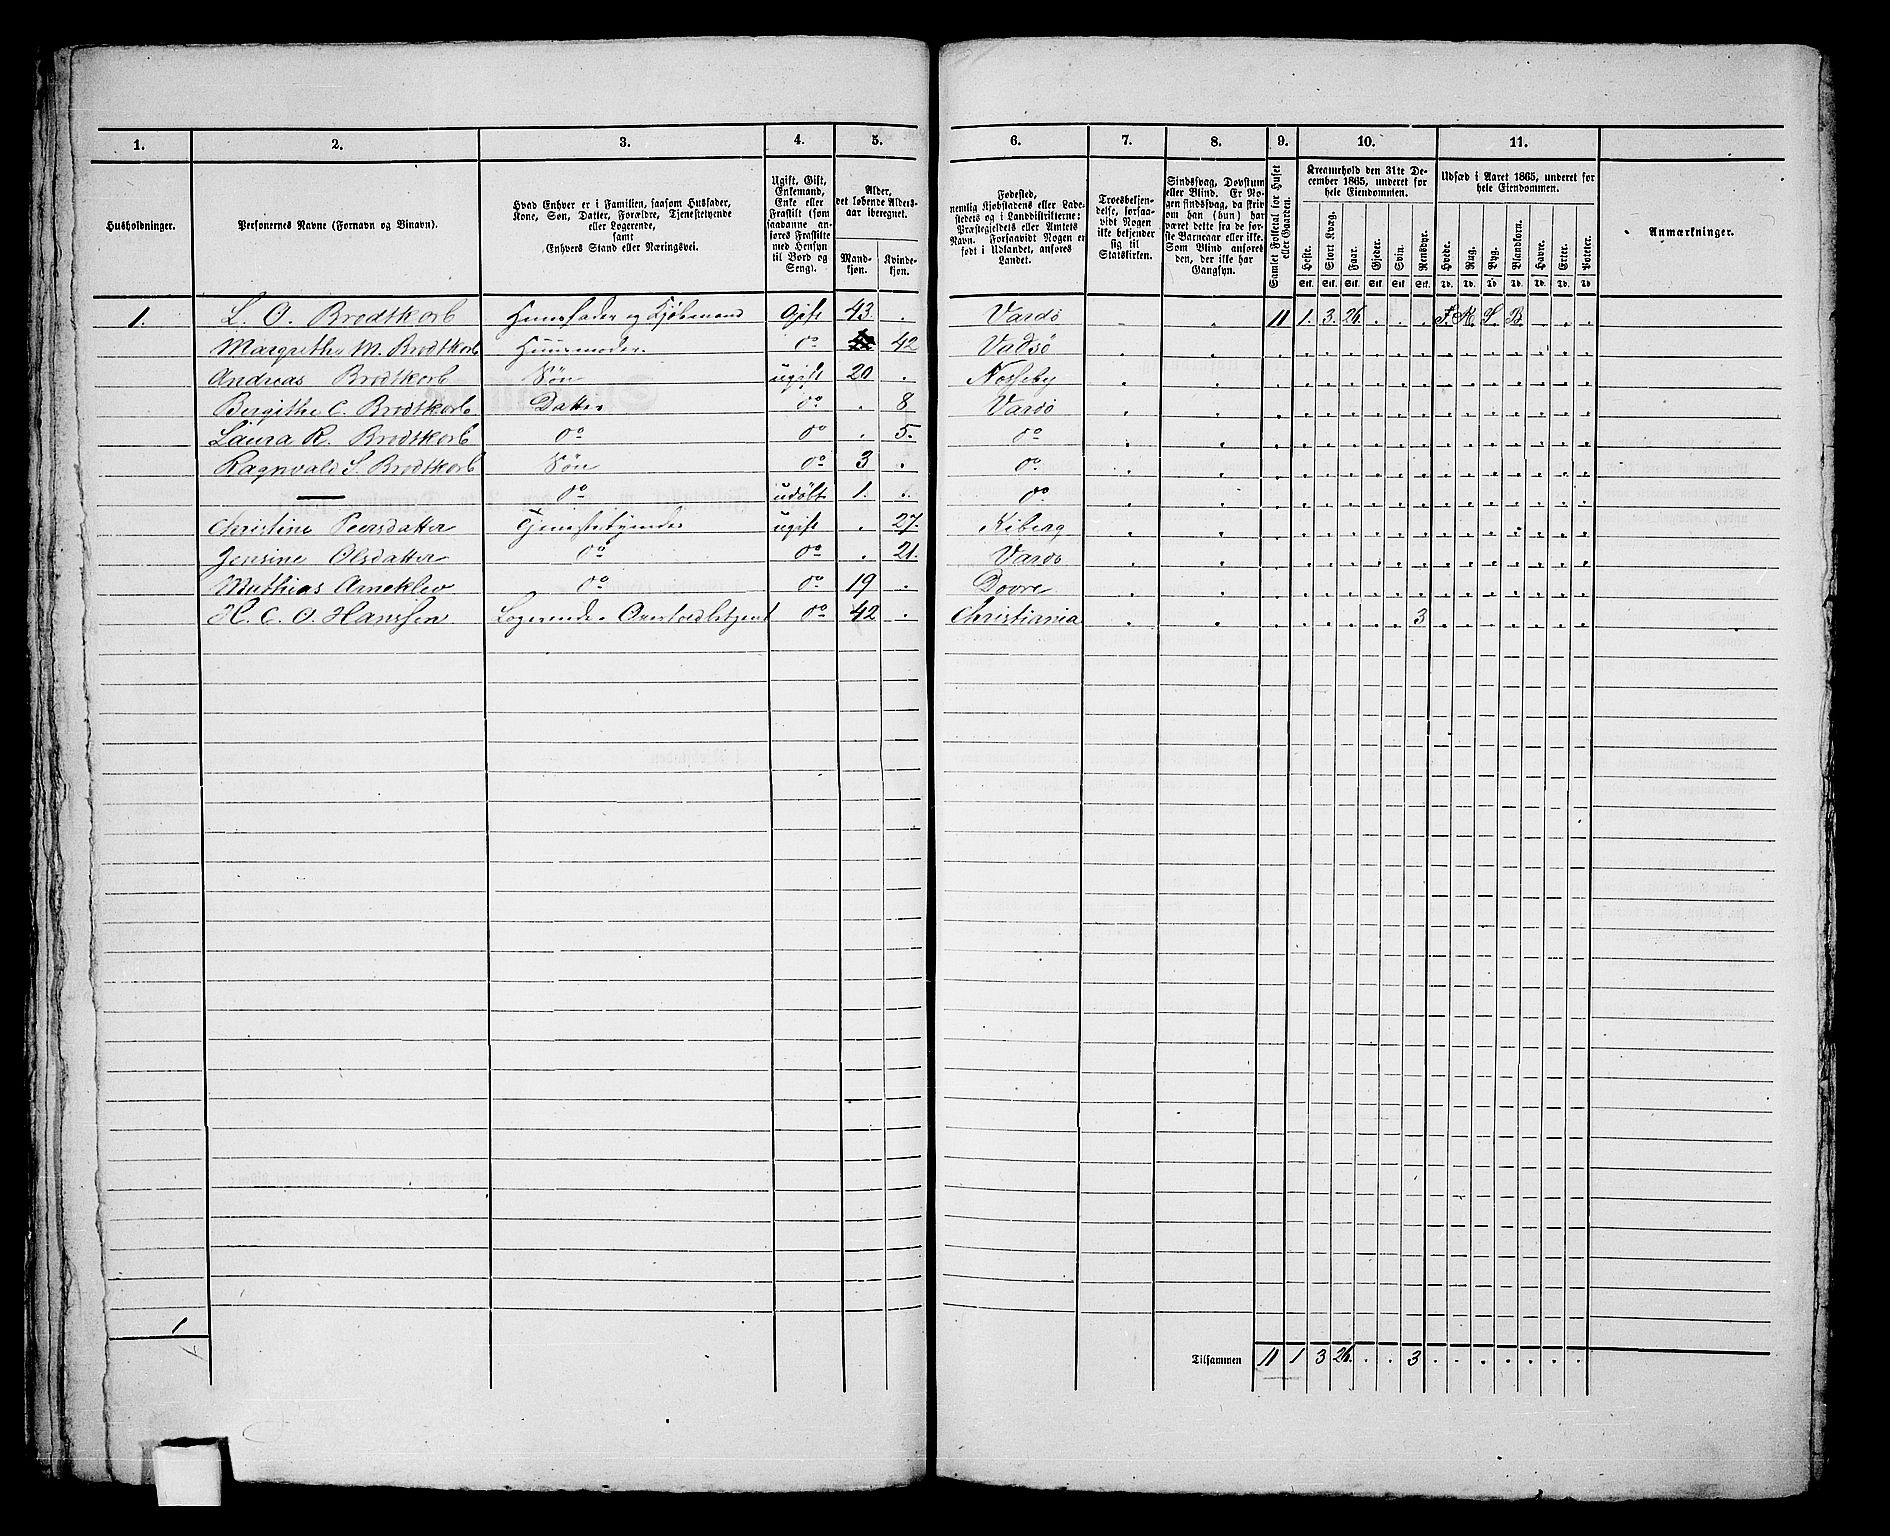 1. 2. 3. 4. 5. 6. 7. 8. 9. 10. 11.
Husholdninger.
Personernes Navne (Fornavn og Binavn).
Hvad Enhver er i Familien, saasom Husfader,
Kone, Søn, Datter, Forældre, Tjenestetyende
eller Logerende,
samt
Enhvers Stand eller Næringsvei.
Ugift, Gift,
Enkemand,
Enke eller
Fraskilt (som
saadanne an-
føres Fraskilte
med Hensyn
til Bord og
Seng).
Alder,
det løbende Alders-
aar iberegnet.
Mand-
kjøn.
Kvinde-
kjøn.
Fødested,
nemlig Kjøbstadens eller Lade-
stedets og i Landdistrikterne:
Præstegjeldets eller Amtets
Navn. Forsaavidt Nogen er
født i Udlandet, anføres
Landet.
Troesbekjen-
delse, forsaa-
vidt Nogen
ikke bekjender
sig til
Statskirken.
Sindssvag, Døvstum
eller Blind. Er No-
gen sindssvag, da skriv
om han (hun) har
været dette fra de før-
ste Barneaar eller ikke.
Som Blind anføres
den, der ikke har
Gangsyn.
Samlet Folketal for Huset
eller Gaarden.
Kreaturhold den 31te De-
cember 1865, underet for
hele Eiendommen.
Heste. Stort Kvæg. Faar. Gjeder. Svin. Rensdyr.
Stk. Stk. Stk. Stk. Stk. Stk.
Udsæd i Aaret 1865, underet for
hele Eiendommen.
Hvede. Rug. Byg. Blandkorn. Havre. Erter. Poteter.
Td. Td. Td. Td. Td. Td. Td.
Anmærkninger.
1. L. O. Brodtkorb Huusfader og Kjøbmand Gift 43. . Vardø 11 1. 3. 26. . . .
Margrethe M. Brodtkorb Huusmoder do 42 Vadsø
Andreas Brodtkorb Søn ugift 20 . Næsseby
Bergithe C. Brodtkorb Datter do . 8 Vardø
Laura R. Brodtkorb do do . 5. do
Ragnvald S. Brodtkorb Søn do 3 . do
— do udøbt 1. . do
Christine Peersdatter Tjenestetyende ugift . 27. Kiberg
Jensine Olsdatter do do . 21. Vardø
Mathias Arneklev do do 19 . Dovre
H. C. O. Hanssen Logerende, Overtoldbetjent do 42 . Christiania 3
1
Tilsammen 11 1 3 26. . . 3 . . . . . . .